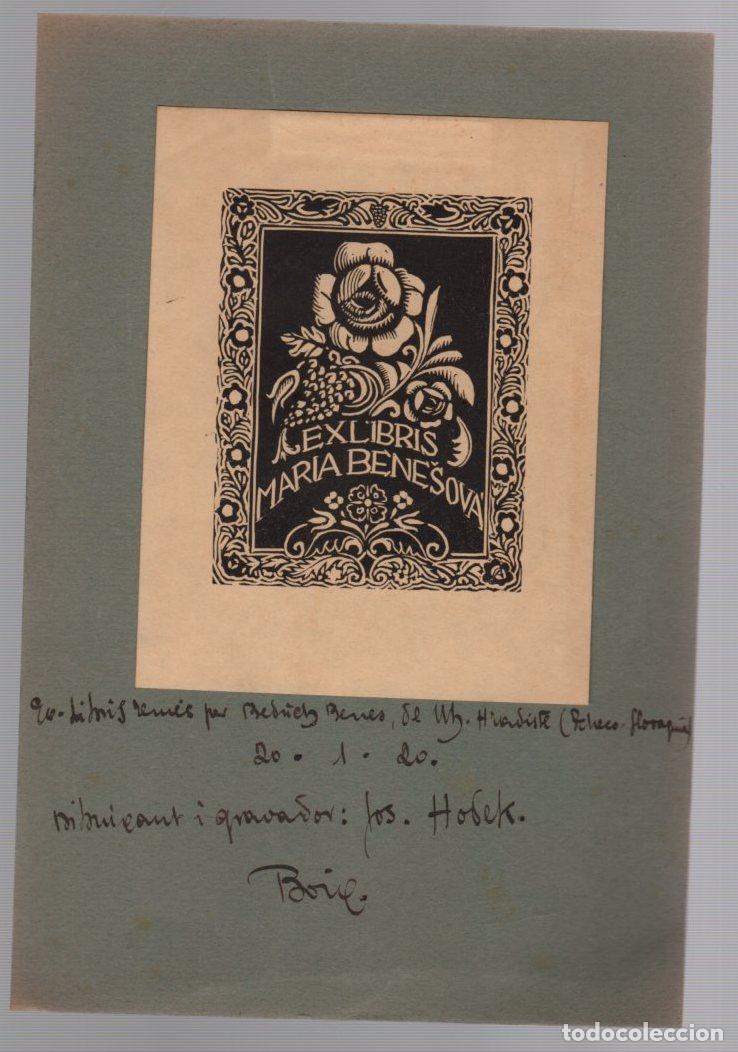 EXLIBRIS
MARIA BENEŠOVÁ
Ex-Libris remés per Bedrich Benes, de Uh. Hradiště (Tcheco-Slovaquia)
20 - 1 - 20.
Dibuixant i gravador: Jos. Hodek.
Boix.
todocoleccion